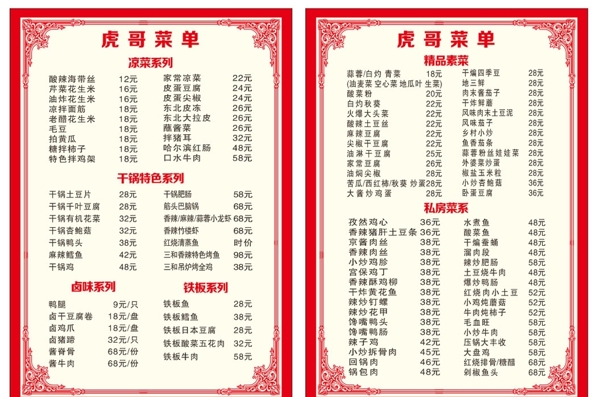 虎哥菜单
凉菜系列
酸辣海带丝 12元 家常凉菜 22元
芹菜花生米 16元 皮蛋豆腐 24元
油炸花生米 16元 皮蛋尖椒 24元
凉拌面筋 18元 东北皮冻 26元
老醋花生米 18元 东北大拉皮 26元
毛豆 18元 蘸酱菜 26元
拍黄瓜 18元 拌猪耳 32元
糖拌柿子 18元 哈尔滨红肠 48元
特色拌鸡架 18元 口水牛肉 58元
干锅特色系列
干锅土豆片 28元 干锅肥肠 58元
干锅千叶豆腐 28元 筋头巴脑锅 68元
干锅有机花菜 32元 香辣/麻辣/蒜蓉小龙虾 68元
干锅杏鲍菇 32元 香辣竹楼虾 68元
干锅鸭头 38元 红烧清蒸鱼 时价
麻辣鳕鱼 42元 三和香辣特色烤鱼 98元
干锅鸡 48元 三和吊炉烤全鸡 38元
卤味系列 铁板系列
鸭腿 9元/只 铁板鱼 28元
卤干豆腐卷 18元/盘 铁板鳕鱼 38元
卤鸡爪 18元/盘 铁板日本豆腐 28元
卤猪蹄 32元/只 铁板酸菜五花肉 32元
酱脊骨 68元/份 铁板牛肉 58元
酱牛肉 68元/份
虎哥菜单
精品素菜
蒜蓉/白灼 青菜 18元 干煸四季豆 28元
(油麦菜 空心菜 地瓜叶 生菜) 地三鲜 28元
酸菜粉 20元 肉末酱茄子 28元
白灼秋葵 22元 干炸鲜蘑 28元
火爆大头菜 22元 风味肉末土豆泥 28元
酸辣土豆丝 22元 风味茄子 28元
麻辣豆腐 22元 乡村小炒 28元
尖椒干豆腐 22元 鱼香茄条 28元
油淋干豆腐 25元 蒜蓉粉丝娃娃菜 28元
家常豆腐 26元 外婆菜炒蛋 28元
油焖尖椒 28元 椒盐玉米粒 28元
苦瓜/西红柿/秋葵 炒蛋 28元 小炒杏鲍菇 36元
大酱炒鸡蛋 28元 卧蛋豆腐 36元
私房菜系
孜然鸡心 36元 水煮鱼 48元
香辣猪肝土豆条 36元 酸菜鱼 48元
京酱肉丝 38元 干煸蚕蛹 48元
香辣肉丝 38元 溜肉段 48元
小炒鸡胗 38元 辣炒肥肠 58元
宫保鸡丁 38元 土豆烧牛肉 48元
香辣酥鸡柳 38元 爆炒鸭肠 48元
干炸黄花鱼 38元 红烧肉小土豆 52元
辣炒钉螺 38元 小鸡炖蘑菇 52元
辣炒花甲 38元 牛肉炖柿子 52元
馋嘴鸭头 38元 毛血旺 58元
馋嘴鸭肠 38元 小炒牛肉 58元
辣子鸡 42元 压锅大丰收 58元
小炒拆骨肉 45元 大盘鸡 58元
回锅肉 46元 红烧排骨/糖醋 68元
锅包肉 48元 剁椒鱼头 68元